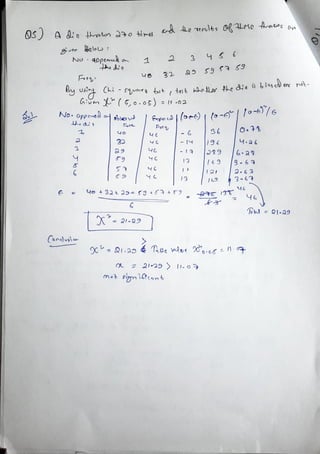 Q5) A die thrown 270 times and the results of these throws are
given Below :
No. appeared on the die 1 2 3 4 5 6
Freq. 40 32 29 59 57 59
By using Chi - square test, test whether the die is biased or not.
Given X² (5, 0.05) = 11.02
No. appeared on the die | Observed Freq | Expected Freq | (O-E) | (O-E)² | (O-E)²/E
1 40 46 - 6 36 0.78
2 32 46 - 14 196 4.26
3 29 46 - 17 289 6.28
4 59 46 13 169 3.67
5 57 46 11 121 2.63
6 59 46 13 169 3.67
E = 40 + 32 + 29 + 59 + 57 + 59 / 6 = = 46
Total = 21.29
X² = 21.29
Conclusion
X² = 21.29 > Table value X² 0.05 = 11.07
x = 21.29 > 11.07
not significant